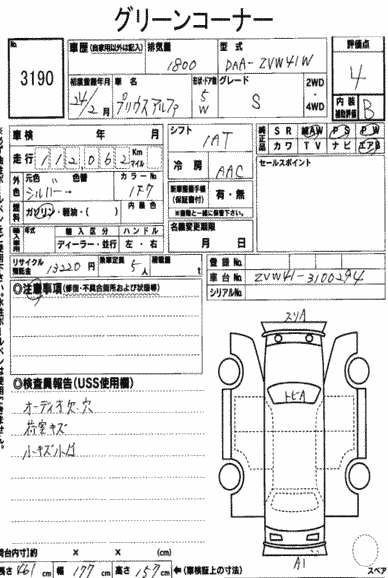 グリーンコーナー
No. 3190
車歴 (自家用以外は記入) 排気量 1800 型式 DAA-ZVW41W 評価点 4
初度登録年月 24/2月 車名 プリウスアルファ 形状・ドア数 5 W グレード S 2WD・4WD 内装補助評価 B
車検 年 月 シフト 1AT 純正品 SR AW PS PW
カワ TV ナビ エアB
走行 112062 Km マイル 冷房 AAC セールスポイント
外色 元色 シルバー 色替 カラーNo. 1F7
燃料 ガソリン・軽油・( ) 内装色 新車整備手帳(保証書付) 有・無
※書類と一緒に保管下さい。
輸入車用 年式 輸入区分 ハンドル 名義変更期限
ディーラー・並行 左・右 月 日
リサイクル預託金 13220円 乗車定員 5人 積載量 t
登録No.
車台No. ZVW41-3100294
シリアルNo.
◎注意事項(修復・不具合箇所および状態等)
◎検査員報告(USS使用欄)
オーディオ欠・穴
荷室キズ
小キズ小凹
スリA
トビA
A1
荷台内寸 約 × × (cm)
長さ 461 cm 幅 177 cm 高さ 157 cm ←(車検証上の寸法)
スペア